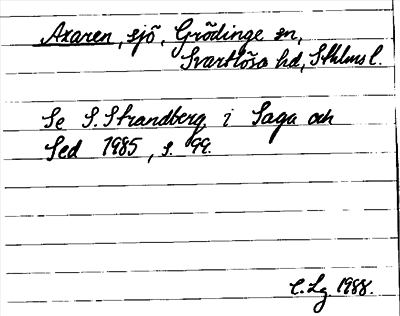 Axaren, sjö, Grödinge sn,
Svartlösa hd, Sthlms l.
Se S. Strandberg i Saga och
Sed 1985, s. 99.
C.Lg 1988.